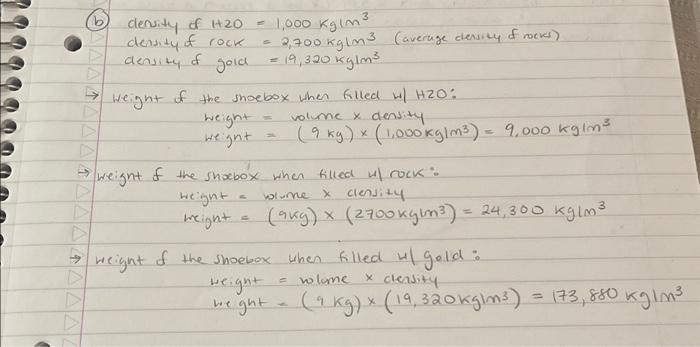 (b) density of H2O = 1,000 kg/m³
density of rock = 2,700 kg/m³ (average density of rocks)
density of gold = 19,320 kg/m³
→ weight of the shoebox when filled w/ H2O:
weight = volume x density
weight = (9 kg) x (1,000 kg/m³) = 9,000 kg/m³
→ weight of the shoebox when filled w/ rock:
weight = volume x density
weight = (9kg) x (2700 kg/m³) = 24,300 kg/m³
→ weight of the shoebox when filled w/ gold:
weight = volume x density
weight = (9 kg) x (19,320 kg/m³) = 173,880 kg/m³